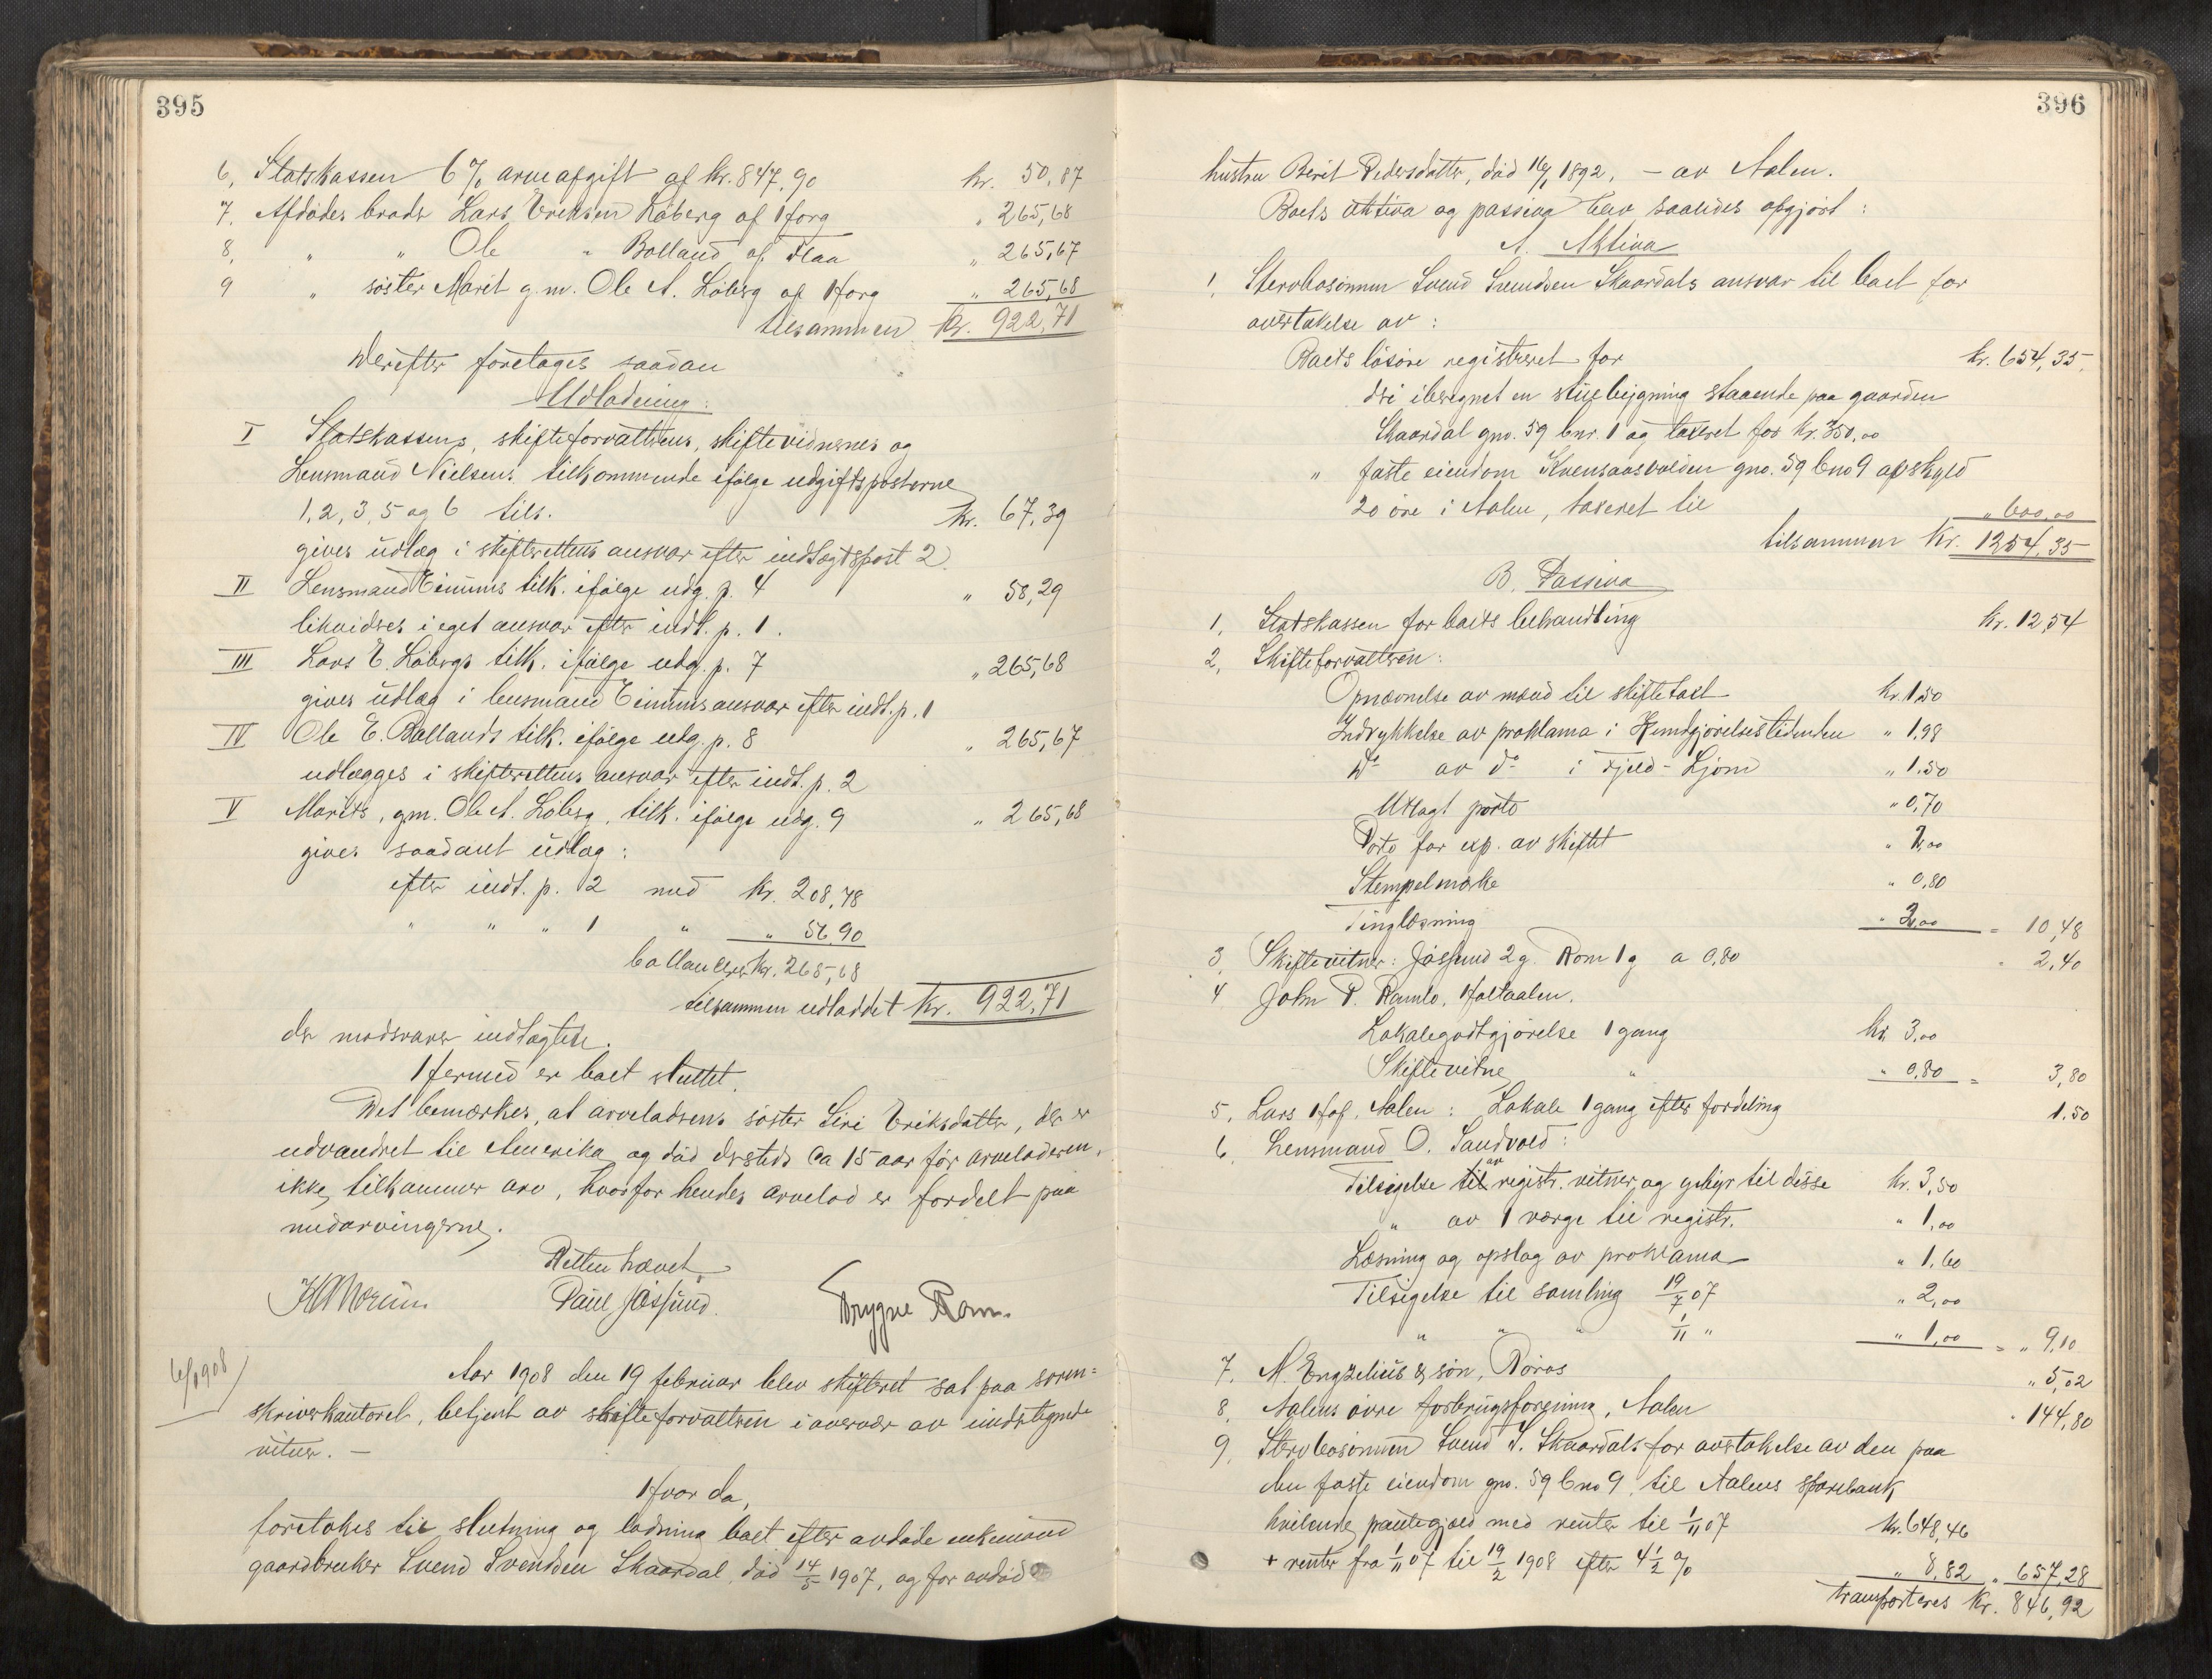 395
6, Statskassen 6 % arveafgift af kr. 847,90 kr. 50,87
7. Afdødes broder Lars Eriksen Løberg af Horg " 265,68
8, " " Ole " Bolland af Flaa " 265,67
9 " søster Marit g.m. Ole A. Løberg af Horg " 265,68
tilsammen kr. 922,71
Derefter foretages saadan
Udlodning:
I Statskassens, skifteforvalterens, skiftevidnernes og
Lensmand Nielsens tilkommende ifølge udgiftsposterne
1, 2, 3, 5 og 6 tils. kr. 67,39
gives udlæg i skifterettens ansvar efter indtægtspost 2.
II Lensmand Eimums tilk. ifølge udg. p. 4 " 58,29
likvideres i eget ansvar efter indt. p. 1.
III Lars E. Løbergs tilk. ifølge udg. p. 7 " 265,68
gives udlæg i lensmand Eimums ansvar efter indt. p. 1
IV Ole E. Bollands tilk. ifølge udg. p. 8 " 265,67
udlægges i skifterettens ansvar efter indt. p. 2
V Marits, gm. Ole A. Løberg, tilk. ifølge udg. 9 " 265,68
gives saadant udlæg:
efter indt. p. 2 med kr. 208,78
" " " 1 " " 56,90
ballancerer kr. 265,68
tilsammen udloddet kr. 922,71
der modsvarer indtægten.
Hermed er boet sluttet.
Det bemærkes, at arveladerens søster Siri Eriksdatter, der er
udvandret til Amerika og død dersteds ca 15 aar før arveladeren,
ikke tilkommer arv, hvorfor hendes arvelod er fordelt paa
medarvingerne.
Retten hævet.
Paul Jøssund. Trygve Rom.
6/1908
Aar 1908 den 19 februar blev skifteret sat paa soren=
skriverkontoret, betjent av skifteforvalteren i overvær av undertegnede
vitner. —
Hvor da,
foretokes til slutning og lodning boet efter avdøde enkemand
gaardbruker Svend Svendsen Skaardal, død 14/5 1907, og før avdøde
396
hustru Berit Pedersdatter, død 16/1 1892, — av Aalen.
Boets aktiva og passiva blev saaledes opgjort:
A. Aktiva
1, Stervbosønnen Svend Svendsen Skaardals ansvar til boet for
overtakelse av:
Boets løsøre registreret for kr. 654,35,
deri iberegnet en stuebygning staaende paa gaarden
Skaardal gno. 59 bnr. 1 og taxeret for kr. 350,00
" faste eiendom Kvensaasvolden gno. 59 bno 9 af skyld
20 øre i Aalen, taxeret til " 600,00
tilsammen kr. 1254,35
B. Passiva
1, Statskassen for boets behandling kr. 12,54
2, Skifteforvalteren:
Opnævnelse av mænd til skiftetaxt kr. 1,50
Indrykkelse av proklama i Kundgjørelsestidenden " 1,98
Do av do i Fjeld-Ljom " 1.50
Utlagt porto " 0,70
Porto for exp. av skiftet " 1,00
Stempelmerke " 0,80
Tinglæsning " 3,00 = 10,48
3, Skiftevitner: Jøssund 2 g. Rom 1 g a 0,80 " 2,40
4 John P. Ramlo, Holtaalen.
Lokalegodtgjørelse 1 gang kr. 3,00
Skiftevitne " " 0,80 = 3,80
5, Lars Hof, Aalen: Lokale 1 gang efter fordeling 1.50
6, Lensmand O. Sandvold:
Tilsigelse til av registr. vitner og gebyr til disse kr. 3,50
" av 1 værge til registr. " 1,00
Læsning og opslag av proklama " 1,60
Tilsigelse til samling 19/7 07 " 2,00
" " " 1/11 " " 1,00 = " 9,10
7, M. Engzelius & søn, Røros " 5,02
8, Aalens øvre forbrugsforening, Aalen " 144,80
9, Stervbosønnen Svend S. Skaardals for overtakelse av den paa
den faste eiendom gno. 59 bno 9 til Aalens sparebank
hvilende pantegjæld med renter til 1/11 07 kr. 648,46
+ renter fra 1/11 07 til 19/2 1908 efter 4 1/2 % " 8,82 " 657,28
transporteres kr. 846,92